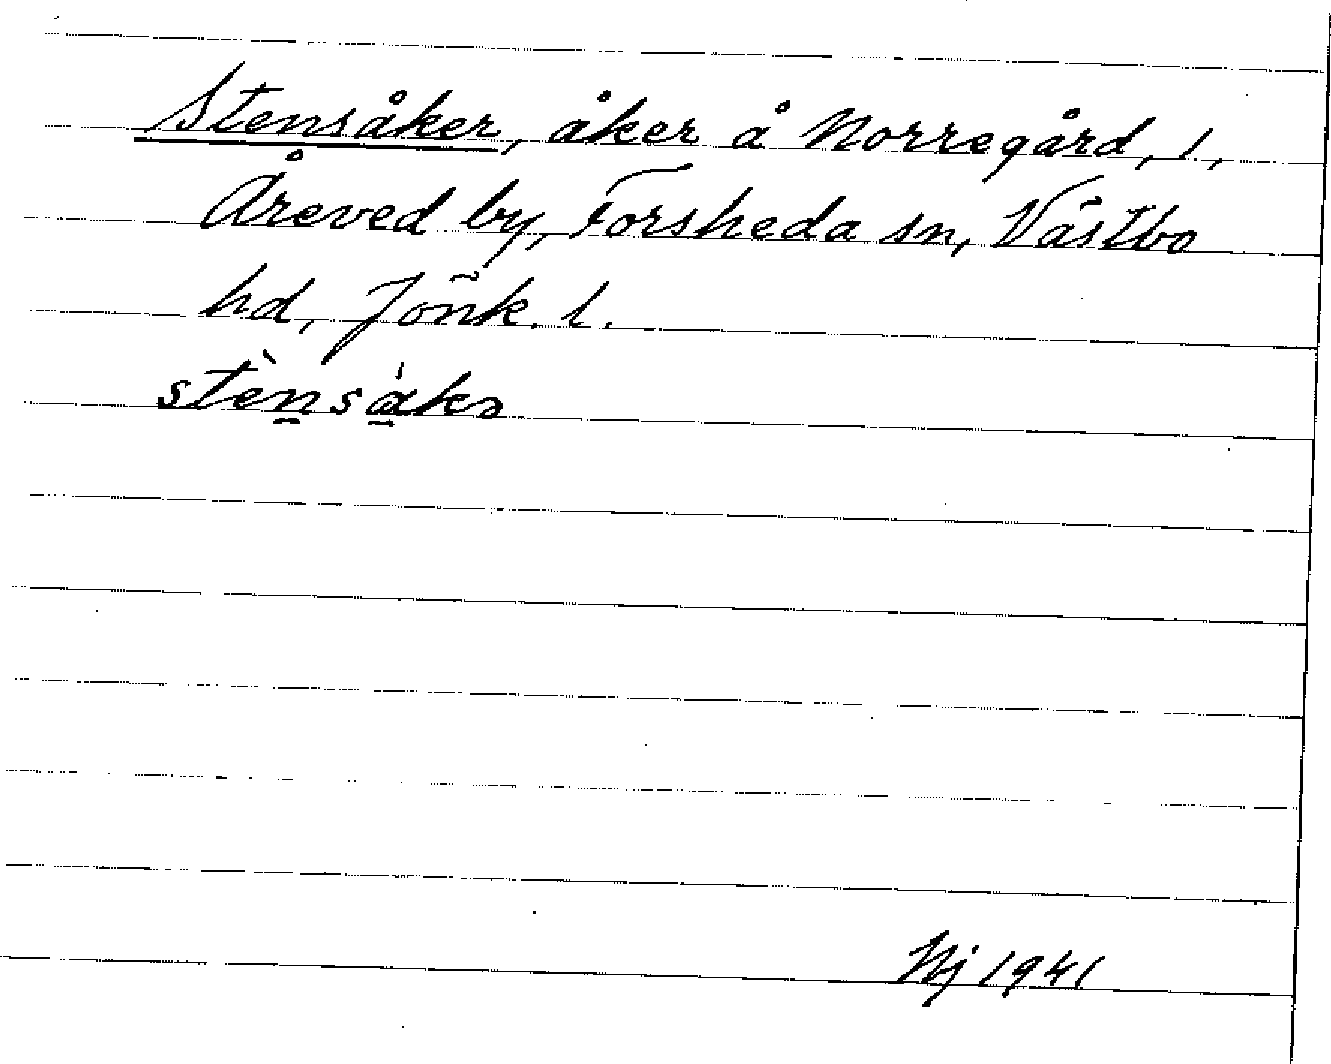 Stensåker, åker å Norregård, 1,
Åreved by, Forsheda sn, Västbo
hd, Jönk. l.
stènsákɔ
Nj 1941